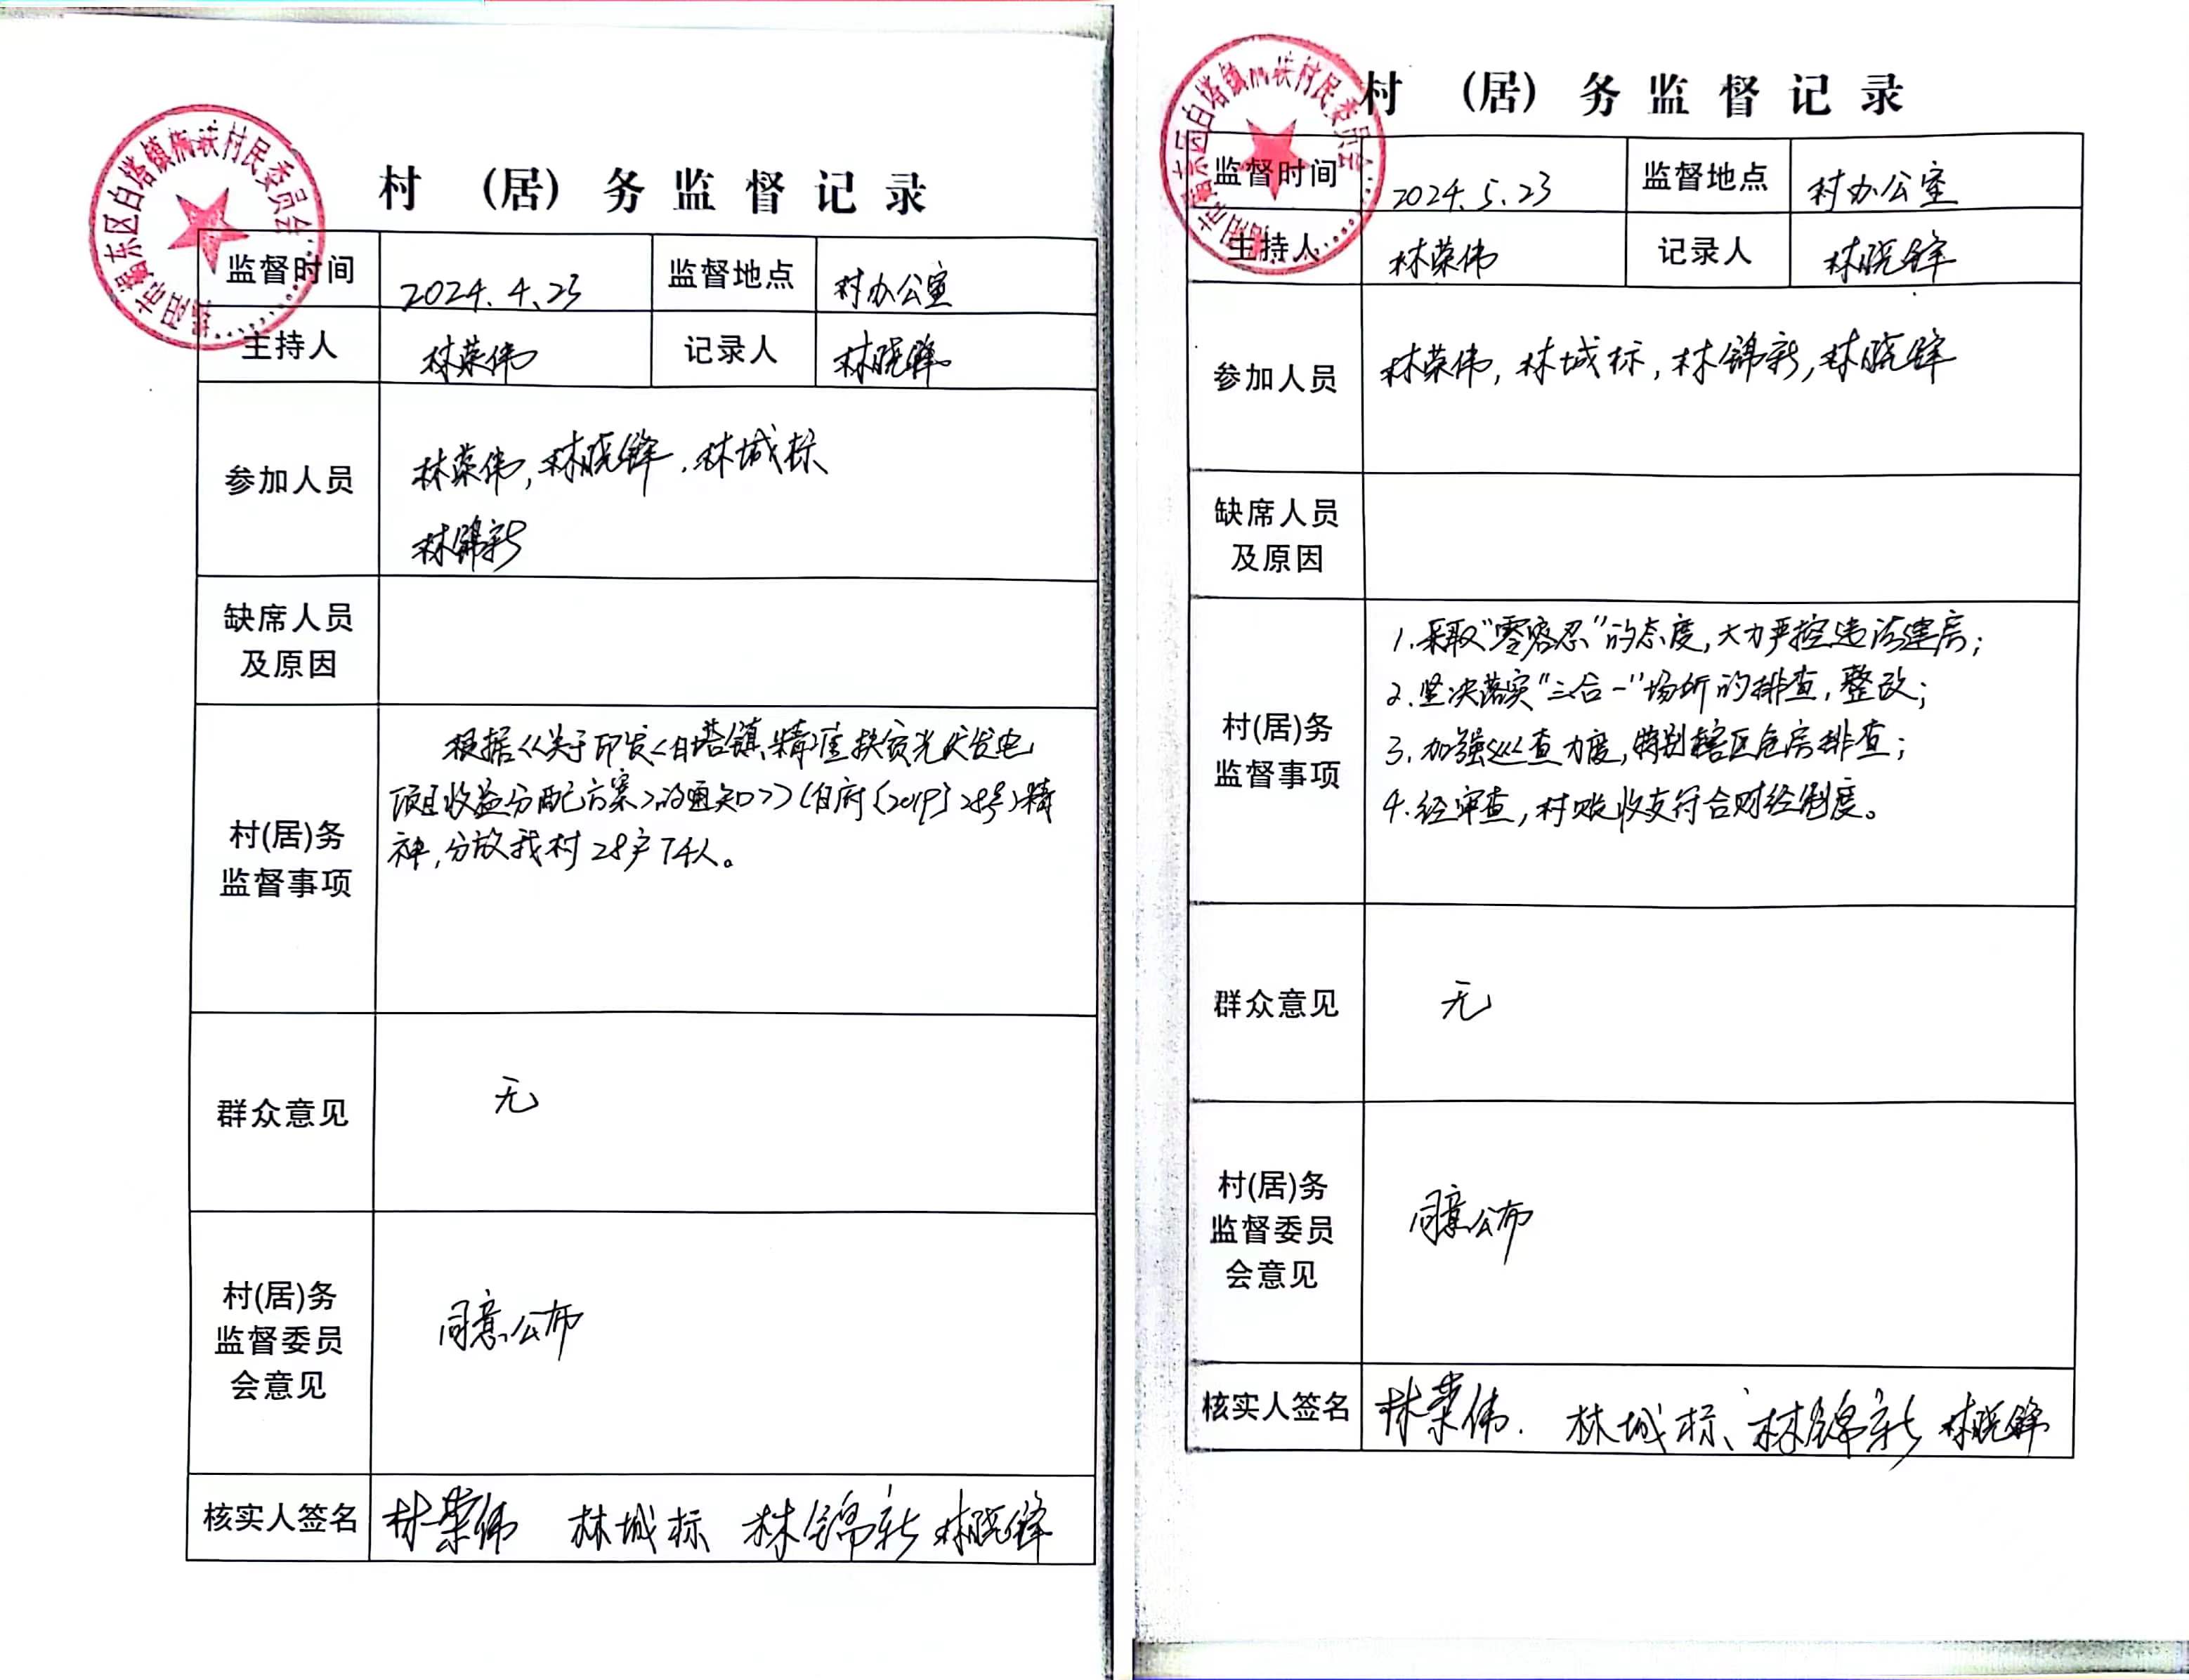 揭阳市揭东区白塔镇梅荻村民委员会
村 (居) 务监督记录
监督时间 2024.4.23 监督地点 村办公室
主持人 林荣伟 记录人 林晓锋
参加人员 林荣伟,林晓锋,林城标
林锦新
缺席人员
及原因
村(居)务
监督事项
根据《关于印发<白塔镇精准扶贫光伏发电
项目收益分配方案>的通知》(白府〔2019〕28号)精
神,分放我村28户74人。
群众意见 无
村(居)务
监督委员
会意见
同意公布
核实人签名 林荣伟 林城标 林锦新 林晓锋
村 (居) 务监督记录
监督时间 2024.5.23 监督地点 村办公室
主持人 林荣伟 记录人 林晓锋
参加人员 林荣伟,林城标,林锦新,林晓锋
缺席人员
及原因
村(居)务
监督事项
1.采取“零容忍”的态度,大力严控违法建房;
2.坚决落实“三合一”场所的排查,整改;
3.加强巡查力度,特别辖区危房排查;
4.经审查,村账收支符合财经制度。
群众意见 无
村(居)务
监督委员
会意见
同意公布
核实人签名 林荣伟.林城标、林锦新 林晓锋